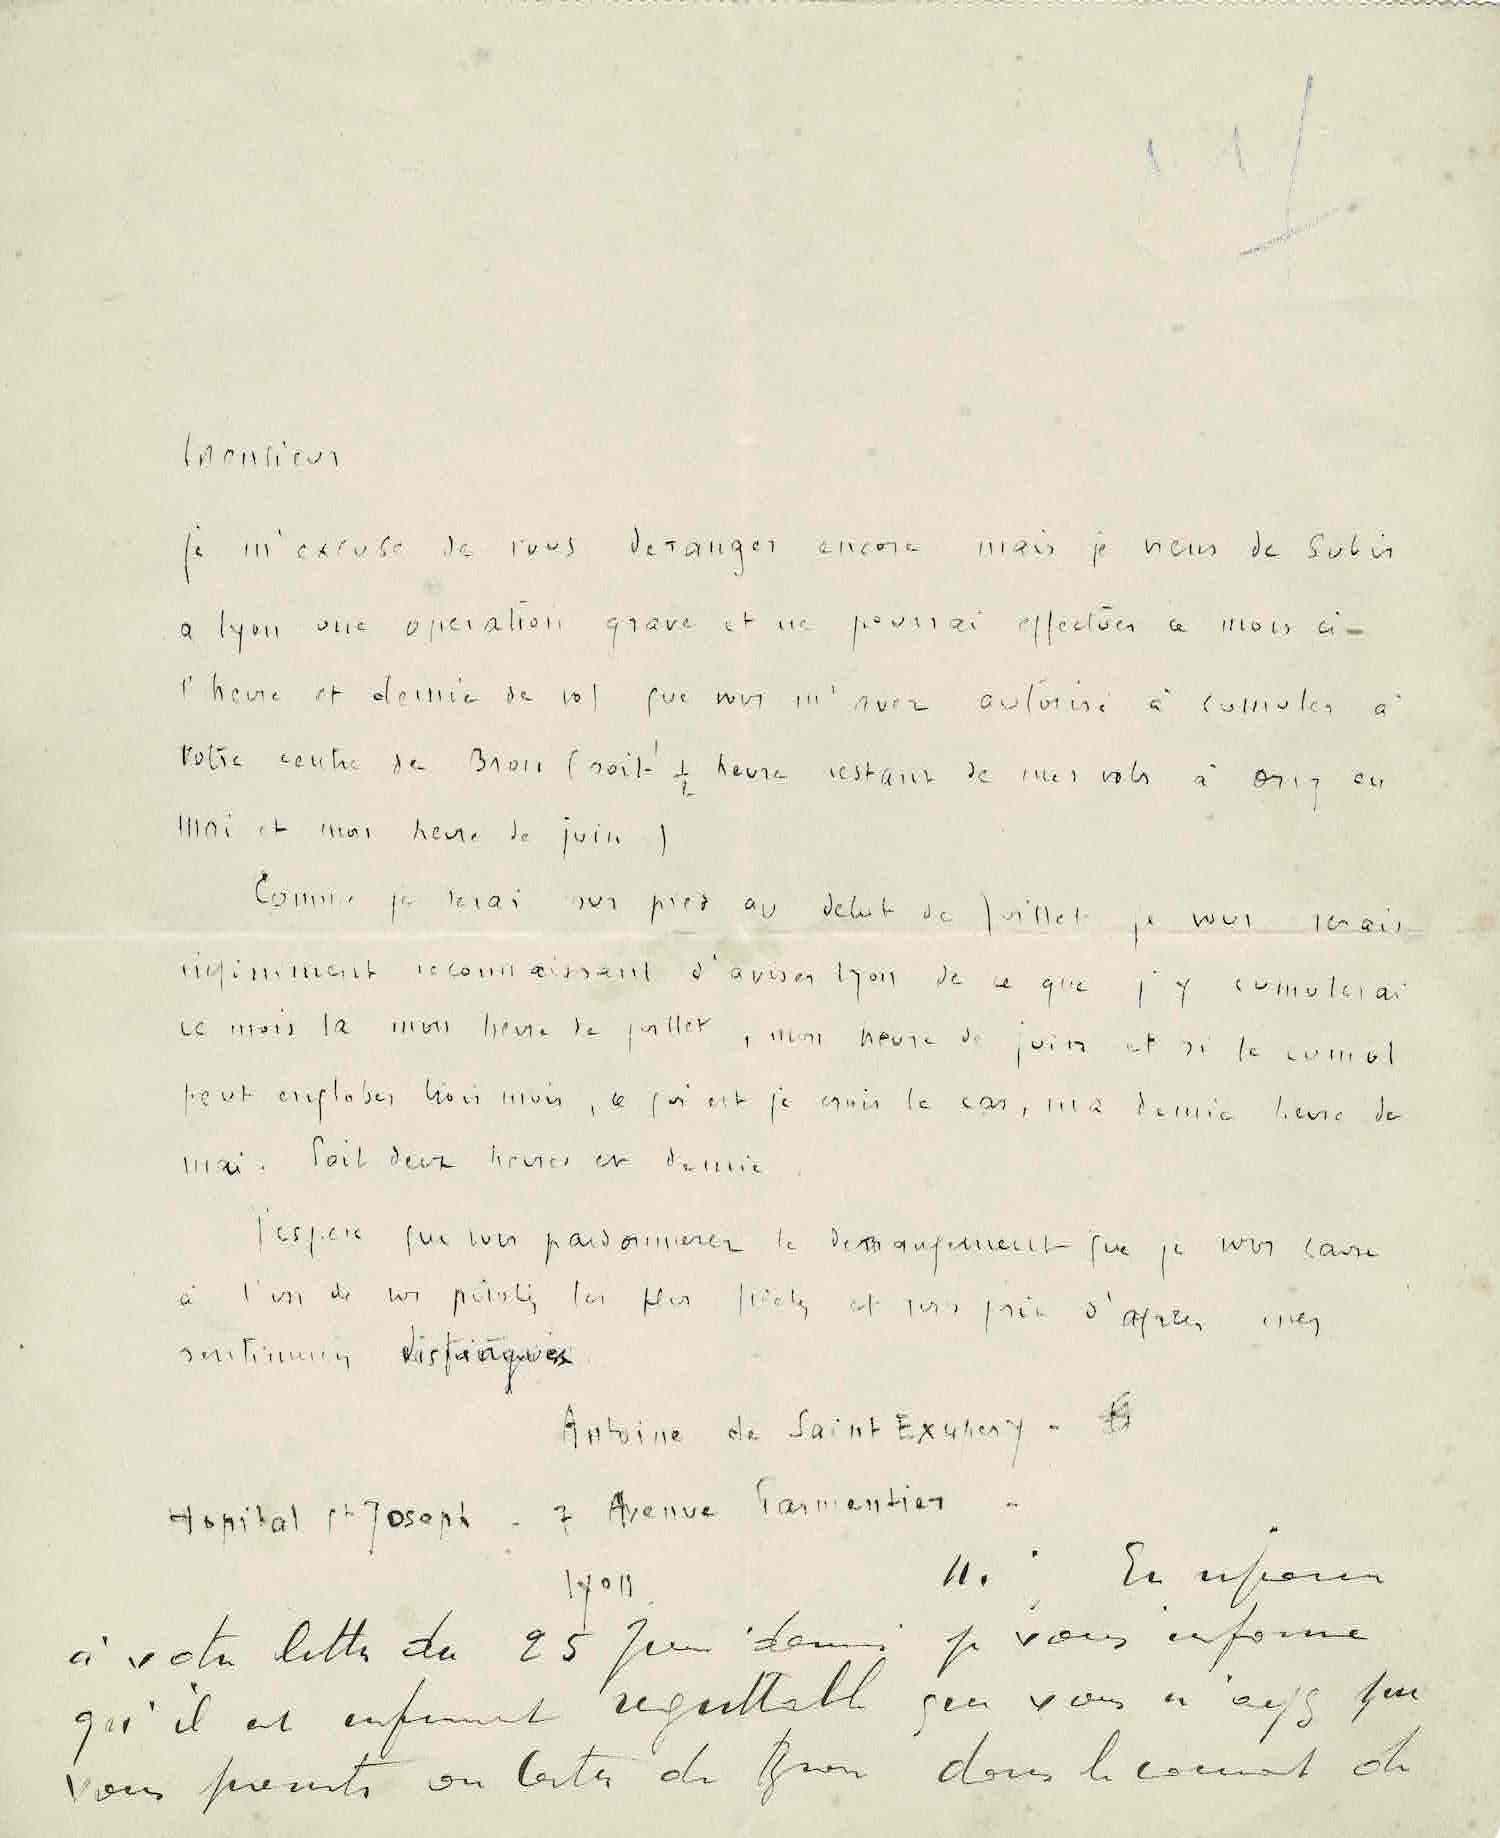 Monsieur
je m'excuse de vous deranger encore mais je viens de subir
a Lyon une operation grave et ne pourrai effectuer ce mois ci-
l'heure et demie de vol que vous m'avez autorisé à cumuler à
votre centre de Bron (soit ½ heure restant de mes vols à Orly en
mai et mon heure de juin)
Comme je serai sur pied au debut de juillet je vous serais
infiniment reconnaissant d'aviser Lyon de ce que j'y cumulerai
ce mois la mon heure de juillet, mon heure de juin et si le cumul
peut englober trois mois, ce qui est je crois le cas, ma demie heure de
mai. Soit deux heures et demie.
J'espere que vous pardonnerez le derrangement que je vous cause
à l'un de vos pilotes les plus et vous prie d'agreer mes
sentiments distingués
Antoine de Saint Exupery -
Hopital St Joseph - 7 Avenue Parmentier -
Lyon
M. En réponse
à votre lettre du 25 Juin dernier je vous informe
qu'il est infiniment regrettable que vous n'ayez pu
vous présenter au Centre de Bron dans le courant de